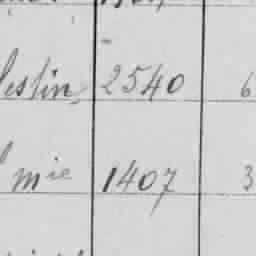 lestin 2540 6
mie 1407 3